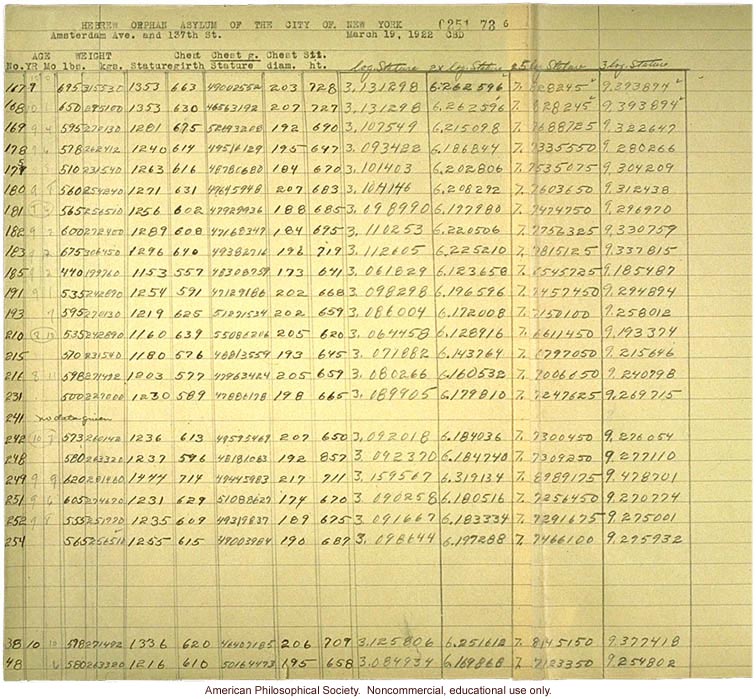 HEBREW ORPHAN ASYLUM OF THE CITY OF NEW YORK
Amsterdam Ave. and 137th St. March 19, 1922 CSD
AGE WEIGHT Chest Chest g. Chest Sit.
No. YR Mo lbs. kgs. Stature girth Stature diam. ht. log Stature 2x log Stature 2.5 log Stature 3 log Stature
167 9 695 315530 1353 663 49002552 203 728 3.131298 6.262596 7.828245 9.393894
168 650 295100 1353 630 46563192 207 727 3.131298 6.262596 7.828245 9.393894
169 9 4 595 270130 1281 675 52693208 192 690 3.107549 6.215098 7.7688725 9.322647
178 578 262412 1240 614 49516129 195 647 3.093422 6.186844 7.7335550 9.280266
510 231540 1263 616 48780680 184 670 3.101403 6.202806 7.7535075 9.304209
180 560 254240 1271 631 49645948 207 683 3.104146 6.208292 7.7603650 9.312438
181 565 256510 1256 602 47929936 188 685 3.098990 6.197980 7.7474750 9.296970
182 9 2 600 272400 1289 608 47168347 184 695 3.110253 6.220506 7.7756325 9.330759
183 675 306450 1296 640 49382716 196 719 3.112605 6.225210 7.7815125 9.337815
185 9 2 440 199760 1153 557 48308759 173 641 3.061829 6.123658 7.6545725 9.185487
191 9 1 535 242890 1254 591 47129186 202 668 3.098298 6.196596 7.7457450 9.294894
193 595 270130 1219 625 51271534 202 659 3.086004 6.172008 7.7150100 9.258012
210 535 242890 1160 639 55086206 205 620 3.064458 6.128916 7.6611450 9.193374
215 510 231540 1180 576 48813559 193 645 3.071882 6.143764 7.6797050 9.215646
216 8 11 598 271492 1203 577 47963424 205 659 3.080266 6.160532 7.7006650 9.240798
231 500 227000 1230 589 47886178 198 665 3.089905 6.179810 7.7247625 9.269715
241 no data given
242 10 573 260142 1236 613 49595469 207 650 3.092018 6.184036 7.7300450 9.276054
248 580 263320 1237 596 48181083 192 857 3.092370 6.184740 7.7309250 9.277110
249 9 9 620 281480 1444 714 49445983 217 711 3.159567 6.319134 7.8989175 9.478701
251 9 6 605 274670 1231 629 51088627 174 670 3.090258 6.180516 7.7256450 9.270774
252 9 8 555 251970 1235 609 49319837 189 675 3.091667 6.183334 7.7291675 9.275001
254 565 256510 1255 615 49003984 190 687 3.098644 6.197288 7.7466100 9.295932
38 10 10 598 271492 1336 620 46407185 206 709 3.125806 6.251612 7.8145150 9.377418
48 6 580 263320 1216 610 50164473 195 658 3.084934 6.169868 7.7123350 9.254802
American Philosophical Society. Noncommercial, educational use only.